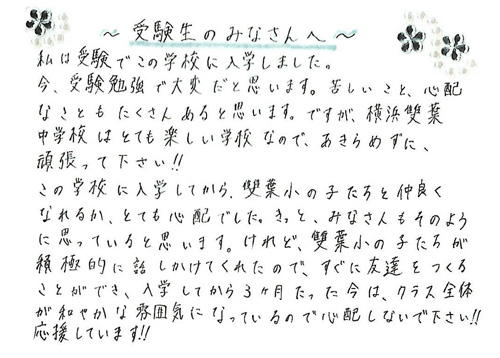 ～受験生のみなさんへ～
私は受験でこの学校に入学しました。
今、受験勉強で大変だと思います。苦しいこと、心配
なこともたくさんあると思います。ですが、横浜雙葉
中学校はとても楽しい学校なので、あきらめずに、
頑張って下さい!!
この学校に入学してから、雙葉小の子たちと仲良く
なれるか、とても心配でした。きっと、みなさんもそのよう
に思っていると思います。けれど、雙葉小の子たちが
積極的に話しかけてくれたので、すぐに友達をつくる
ことができ、入学してから3ヶ月たった今は、クラス全体
が和やかな雰囲気になっているので心配しないで下さい!!
応援しています!!